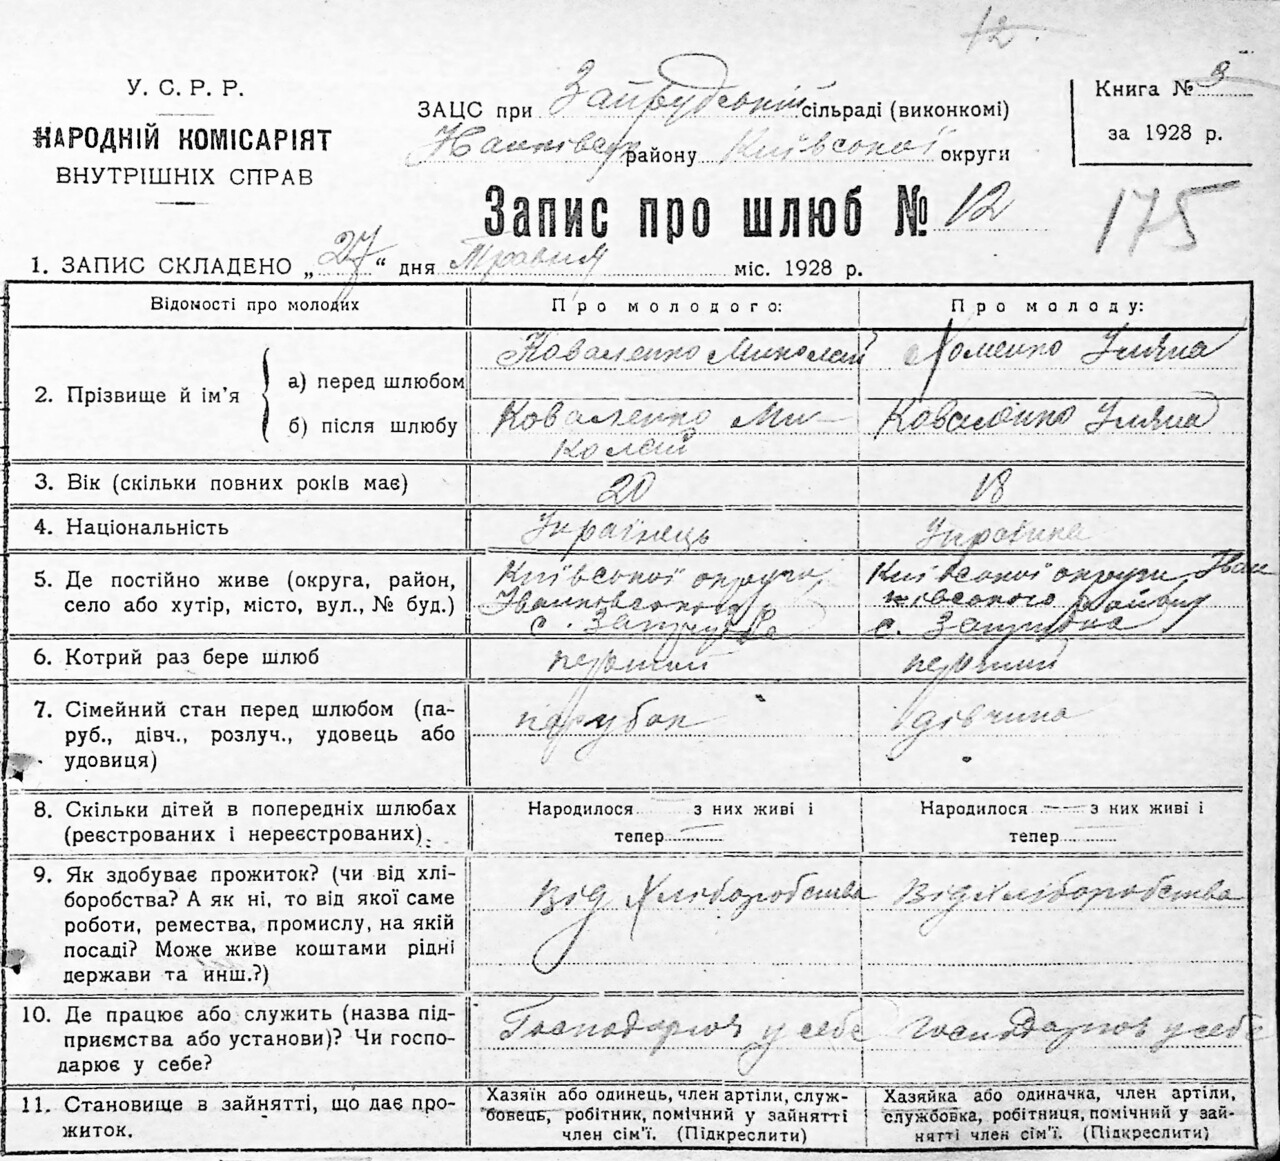 12.
У. С. Р. Р.
НАРОДНІЙ КОМІСАРІЯТ
ВНУТРІШНІХ СПРАВ
ЗАЦС при сільраді (виконкомі)
району Київської округи
Книга № 3
за 1928 р.
Запис про шлюб № 12
175
1. ЗАПИС СКЛАДЕНО „27“ дня Травня міс. 1928 р.
Відомості про молодих
Про молодого:
Про молоду:
2. Прізвище й ім’я
а) перед шлюбом
Коваленко Миколай
Хоменко Уляна
б) після шлюбу
Коваленко Ми-
колай
Коваленко Уляна
3. Вік (скільки повних років має)
20
18
4. Національність
Українець
Українка
5. Де постійно живе (округа, район,
село або хутір, місто, вул., № буд.)
Київської округи,
Іванковського р
с.
Київської округи Іван
ківського району
с.
6. Котрий раз бере шлюб
перший
перший
7. Сімейний стан перед шлюбом (па-
руб., дівч., розлуч., удовець або
удовиця)
парубок
дівчина
8. Скільки дітей в попередніх шлюбах
(реєстрованих і нереєстрованих).
Народилося — з них живі і
тепер —
Народилося — з них живі і
тепер —
9. Як здобуває прожиток? (чи від хлі-
боробства? А як ні, то від якої саме
роботи, ремества, промислу, на якій
посаді? Може живе коштами рідні
держави та инш.?)
Від хліборобства
Від хліборобства
10. Де працює або служить (назва під-
приємства або установи)? Чи госпо-
дарює у себе?
Господарюю у себе
Господарюю у себе
11. Становище в зайнятті, що дає про-
житок.
Хазяїн або одинець, член артіли, служ-
бовець, робітник, помічний у зайнятті
член сім’ї. (Підкреслити)
Хазяйка або одиначка, член артіли,
службовка, робітниця, помічний у зай-
нятті член сім’ї. (Підкреслити)